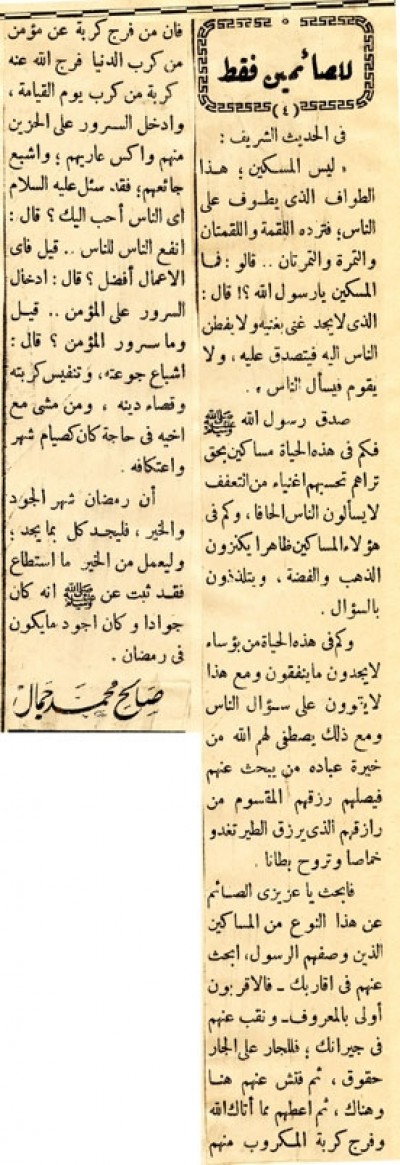 للصائمين فقط
(٤)
فى الحديث الشريف :
« ليس المسكين ؛ هذا
الطواف الذى يطوف على
الناس ؛ فترده اللقمة واللقمتان
والتمرة والتمرتان .. قالو : فما
المسكين يارسول الله ؟! قال :
الذى لا يجد غنى يغنيه ولا يفطن
الناس اليه فيتصدق عليه ، ولا
يقوم فيسأل الناس » .
صدق رسول الله ﷺ
فكم فى هذه الحياة مساكين يحق
تراهم تحسبهم اغنياء من التعفف
لا يسألون الناس الحافا ، وكم فى
هؤلاء المساكين ظاهرا يكنزون
الذهب والفضة ، ويتلذذون
بالسؤال .
وكم فى هذه الحياة من بؤساء
لا يجدون ما ينفقون ومع هذا
لا يتوون على سؤال الناس
ومع ذلك يصطفى لهم الله من
خيرة عباده من يبحث عنهم
فيصلهم رزقهم المقسوم من
رازقهم الذى يرزق الطير تغدو
خماصا وتروح بطانا .
فابحث يا عزيزى الصائم
عن هذا النوع من المساكين
الذين وصفهم الرسول ، ابحث
عنهم فى اقاربك ــ فالاقربون
أولى بالمعروف ــ ونقب عنهم
فى جيرانك ؛ فللجار على الجار
حقوق ، ثم فتش عنهم هنا
وهناك ، ثم اعطهم مما أتاك الله
وفرج كربة المكروب منهم
فان من فرج كربة عن مؤمن
من كرب الدنيا فرج الله عنه
كربة من كرب يوم القيامة ،
وادخل السرور على الحزين
منهم واكس عاريهم ؛ واشبع
جائعهم ؛ فقد سئل عليه السلام
اى الناس أحب اليك ؟ قال :
انفع الناس للناس .. قيل فاى
الاعمال أفضل ؟ قال : ادخال
السرور على المؤمن .. قيل
وما سرور المؤمن ؟ قال :
اشباع جوعته ، وتنفيس كربته
وقصاء دينه ، ومن مشى مع
اخيه فى حاجة كان كصيام شهر
واعتكافه .
أن رمضان شهر الجود
والخير ، فليجد كل بما يجد ؛
وليعمل من الخير ما استطاع
فقد ثبت عن ﷺ انه كان
جوادا وكان اجود ما يكون
فى رمضان .
صالح محمد جمال